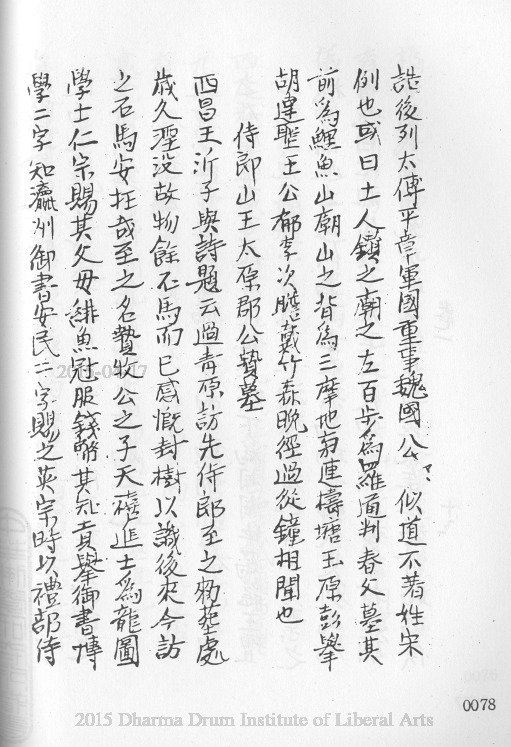 誥後列太傅平章軍國重事魏國公㐅似道不著姓宋
例也或曰土人鑽之廟之左百步為羅通判春父墓其
前為鯉魚山廟山之背為三摩地南連檮塘王原彭舉
胡建聖王公郁李次瞻戴竹森晚徑過從鐘相聞也
侍郎山王太原郡公贄墓
西昌王沂子與詩題云過青原訪先侍郎至之勑葬處
歲久湮沒故物餘石馬而已感慨封樹以識後來今訪
之石馬安在哉至之名贄牧公之子天禧進士為龍圖
學士仁宗賜其父母緋魚冠服錢酪其孔士真舉御書博
學二字知瀛州御書安民二字賜之英宗時以禮部侍
0078
2015 Dharma Drum Institute of Liberal Arts